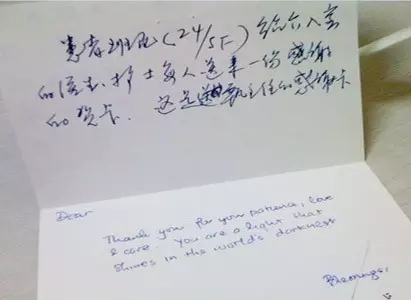 患者班瓦(24/5F)给六人室
的医生.护士每人送来一份感谢
的贺卡. 这是送主任的感谢卡
Dear
Thank you for your patience, love
& care. You are a light that
shines in the world's darkness
Blessings,